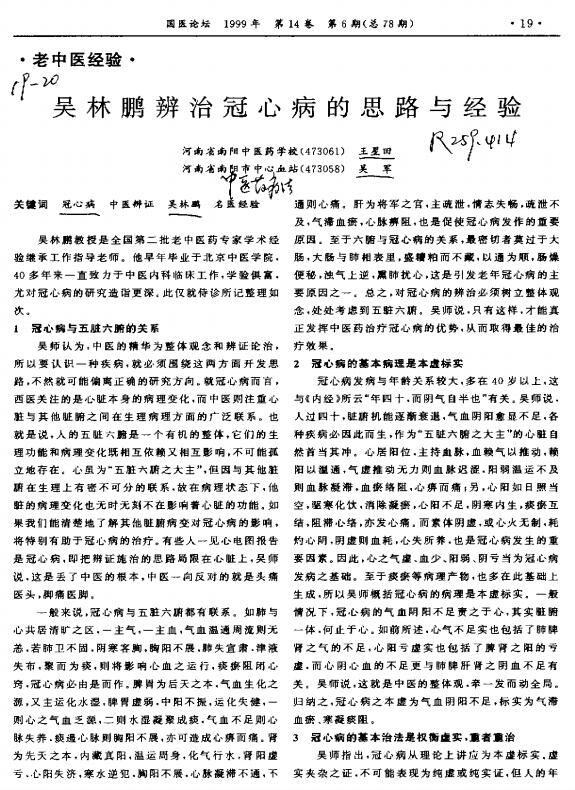 国医论坛 1999年 第14卷 第6期(总78期) ·19·
·老中医经验·
19-20
吴林鹏辨治冠心病的思路与经验
R259.414
河南省南阳中医药学校(473061) 王星田
河南省南阳市中心血站(473058) 吴 军
中医药疗法
关键词 冠心病 中医辨证 吴林鹏 名医经验
吴林鹏教授是全国第二批老中医药专家学术经
验继承工作指导老师。他早年毕业于北京中医学院,
40多年来一直致力于中医内科临床工作,学验俱富,
尤对冠心病的研究造诣更深。此仅就侍诊所记整理如
次。
1 冠心病与五脏六腑的关系
吴师认为,中医的精华为整体观念和辨证论治,
所以要认识一种疾病,就必须围绕这两方面开发思
路,不然就可能偏离正确的研究方向。就冠心病而言,
西医关注的是心脏本身的病理变化,而中医则注重心
脏与其他脏腑之间在生理病理方面的广泛联系。也
就是说,人的五脏六腑是一个有机的整体,它们的生
理功能和病理变化既相互依赖又相互影响,不可能孤
立地存在。心虽为“五脏六腑之大主”,但因与其他脏
腑在生理上有密不可分的联系,故在病理状态下,他
脏的病理变化也无时无刻不在影响着心脏的功能。如
果我们能清楚地了解其他脏腑病变对冠心病的影响,
将特别有助于冠心病的治疗。有些人一见心电图报告
是冠心病,即把辨证施治的思路局限在心脏上,吴师
说,这是丢了中医的根本,中医一向反对的就是头痛
医头,脚痛医脚。
一般来说,冠心病与五脏六腑都有联系。如肺与
心共居清旷之区,一主气,一主血,气血温通周流则无
恙。若肺卫不固,阴寒客胸,胸阳不展,肺失宣肃,津液
失布,聚而为痰,则将影响心血之运行,痰瘀阻闭心
窍,冠心病必由是而作。脾胃为后天之本,气血生化之
源,又主运化水湿,脾胃虚弱,中阳不振,运化失健,一
则心之气血乏源,二则水湿凝聚成痰,气血不足则心
脉失养,痰遏心脉则胸阳不展,亦可造成心痹而痛。肾
为先天之本,内藏真阳,温运周身,化气行水,肾阳虚
亏,心阳失济,寒水逆犯,胸阳不展,心脉凝滞不通,不
通则心痛。肝为将军之官,主疏泄,情志失畅,疏泄不
及,气滞血瘀,心脉痹阻,也是促使冠心病发作的重要
原因。至于六腑与冠心病的关系,最密切者莫过于大
肠,大肠与肺相表里,盛糟粕而不藏,以通为顺,肠燥
便秘,浊气上逆,熏肺扰心,这是引发老年冠心病的主
要原因之一。总之,对冠心病的辨治必须树立整体观
念,处处考虑到五脏六腑。吴师说,只有这样,才能真
正发挥中医药治疗冠心病的优势,从而取得最佳的治
疗效果。
2 冠心病的基本病理是本虚标实
冠心病发病与年龄关系较大,多在40岁以上,这
与《内经》所云“年四十,而阴气自半也”有关。吴师说,
人过四十,脏腑机能逐渐衰退,气血阴阳愈显不足,各
种疾病必因此而生,作为“五脏六腑之大主”的心脏自
然首当其冲。心居阳位,主持血脉,血赖气以推动,赖
阳以温通,气虚推动无力则血脉迟涩,阳弱温运不及
则血脉凝滞,血瘀络阻,心痹而痛;另,心阳如日照当
空,驱寒化饮,消除凝瘀,心阳不足,阴寒内生,痰瘀互
结,阻滞心络,亦发心痛。而素体阴虚,或心火无制,耗
灼心阴,阴虚则血耗,心失所养,也是冠心病发生的重
要因素。因此,心之气虚、血少、阳弱、阴亏当为冠心病
发病之基础。至于痰瘀等病理产物,也多在此基础上
生成,所以吴师概括冠心病的病理是本虚标实。一般
情况下,冠心病的气血阴阳不足责之于心,其实脏腑
一体,何止于心。如前所述,心气不足实也包括了肺脾
肾之气的不足,心阳亏虚实也包括了脾肾之阳的亏
虚,而心阴心血的不足更与肺脾肝肾之阴血不足有
关。吴师说,这就是中医的整体观,牵一发而动全局。
归纳之,冠心病之本虚为气血阴阳不足,标实为气滞
血瘀、寒凝痰阻。
3 冠心病的基本治法是权衡虚实,重者重治
吴师指出,冠心病从理论上讲应为本虚标实,虚
实夹杂之证,不可能表现为纯虚或纯实证,但人的年